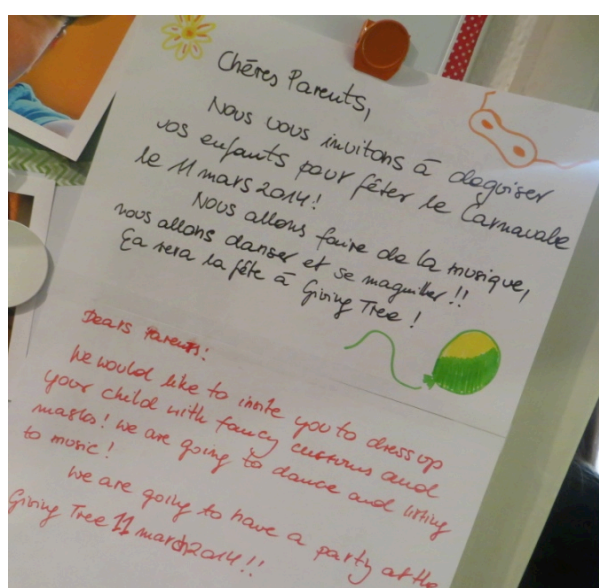 Chères Parents,
Nous vous invitons à deguiser
vos enfants pour fêter le Carnavale
le 11 mars 2014!
Nous allons faire de la musique,
nous allons danser et se maquiller!!
Ça sera la fête à Giving Tree!
Dears Parents:
We would like to invite you to dress up
your child with fancy customs and
masks! we are going to dance and
to music!
We are going to have a party at the
Giving Tree 11 march 2014!!